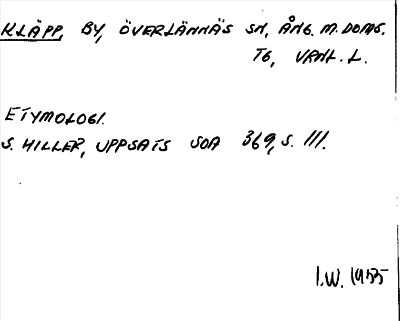 KLÄPP, BY, ÖVERLÄNNÄS SN, ÅNG. M. DOMS.
TG, VRNL. L.
ETYMOLOGI.
S. HILLER, UPPSATS SOA 369, S. 111.
I.W. 1955